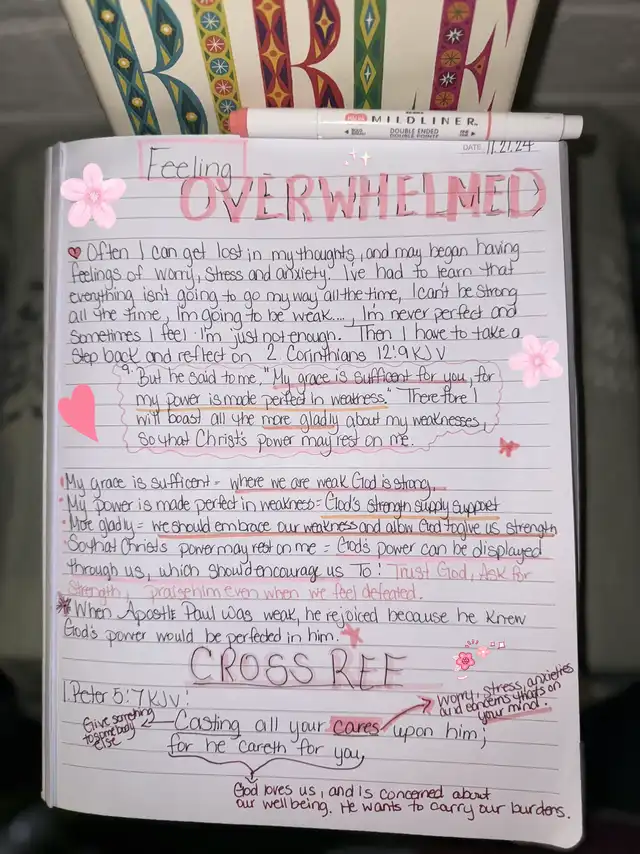 BIBLE
MILDLINER
DOUBLE ENDED
DATE. 11.21.24
Feeling
OVERWHELMED
Often I can get lost in my thoughts, and may began having
feelings of worry, stress and anxiety. I've had to learn that
everything isn't going to go my way all the time, I can't be strong
all the time, I'm going to be weak...., I'm never perfect and
sometimes I feel I'm just not enough. Then I have to take a
step back and reflect on 2 Corinthians 12:9 KJV
9. But he said to me, "My grace is sufficent for you, for
my power is made perfect in weakness." Therefore I
will boast all the more gladly about my weaknesses,
so that Christ's power may rest on me.
My grace is sufficent = where we are weak God is strong.
My power is made perfect in weakness = God's strength supply support
More gladly = we should embrace our weakness and allow God to give us strength
So that Christ's power may rest on me = God's power can be displayed
through us, which should encourage us To! Trust God, Ask for
strength, praise him even when we feel defeated.
When Apostle Paul was weak, he rejoiced because he knew
God's power would be perfected in him.
CROSS REF
1 Peter 5:7 KJV:
Worry, stress, anxieties
and concerns that's on
your mind.
Give something
to somebody
else
Casting all your cares upon him;
for he careth for you
God loves us, and is concerned about
our well being. He wants to carry our burdens.